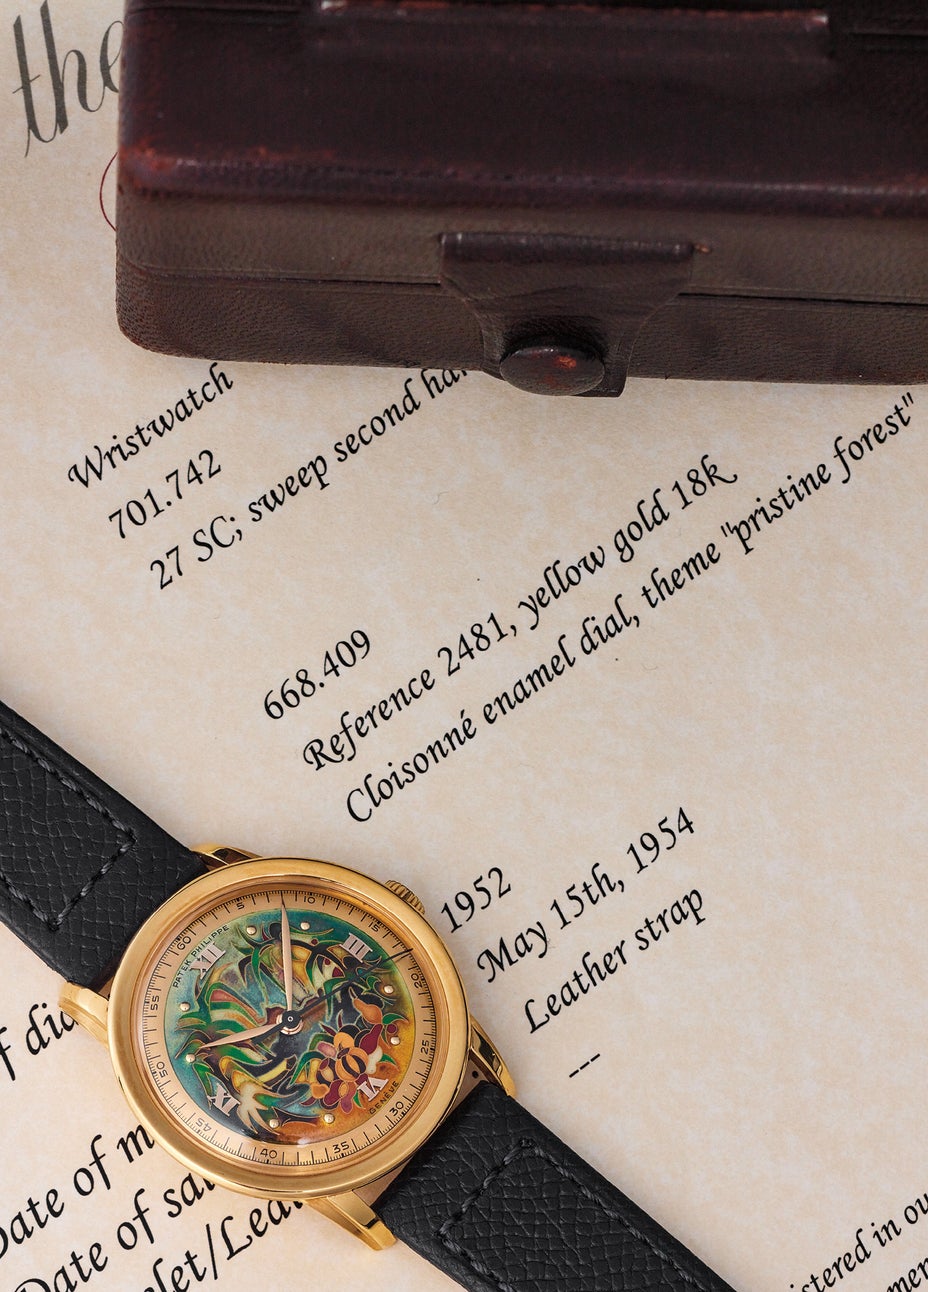 the
Wristwatch
701.742
27 SC; sweep second
668.409
Reference 2481, yellow gold 18k
Cloisonné enamel dial, theme "pristine forest"
1952
May 15th, 1954
Leather strap
---
Date of
Date of
PATEK PHILIPPE
GENÈVE
XII
III
VI
IX
60
5
10
15
20
25
30
35
40
45
50
55